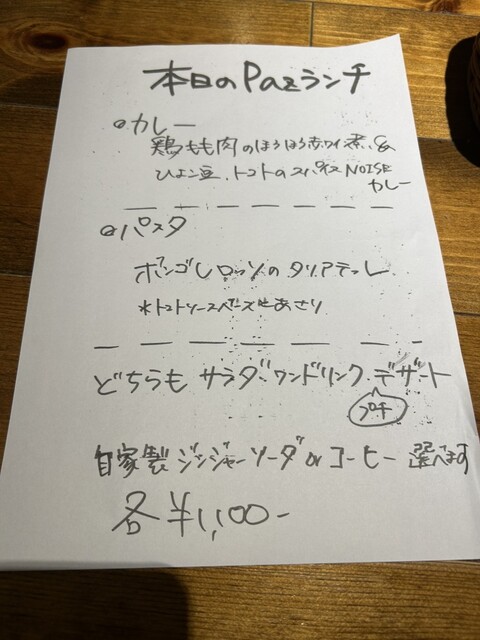 本日のPazランチ
・カレー
鶏もも肉のほろほろ赤ワイン煮、&
ひよこ豆、トマトのスパイス NOISE
カレー
・パスタ
ボンゴレロッソのタリアテッレ
*トマトソースベース あさり
どちらも サラダ・ワンドリンク デザート
プチ
自家製 ジンジャーソーダ or コーヒー 選べます
各 ¥1,100-